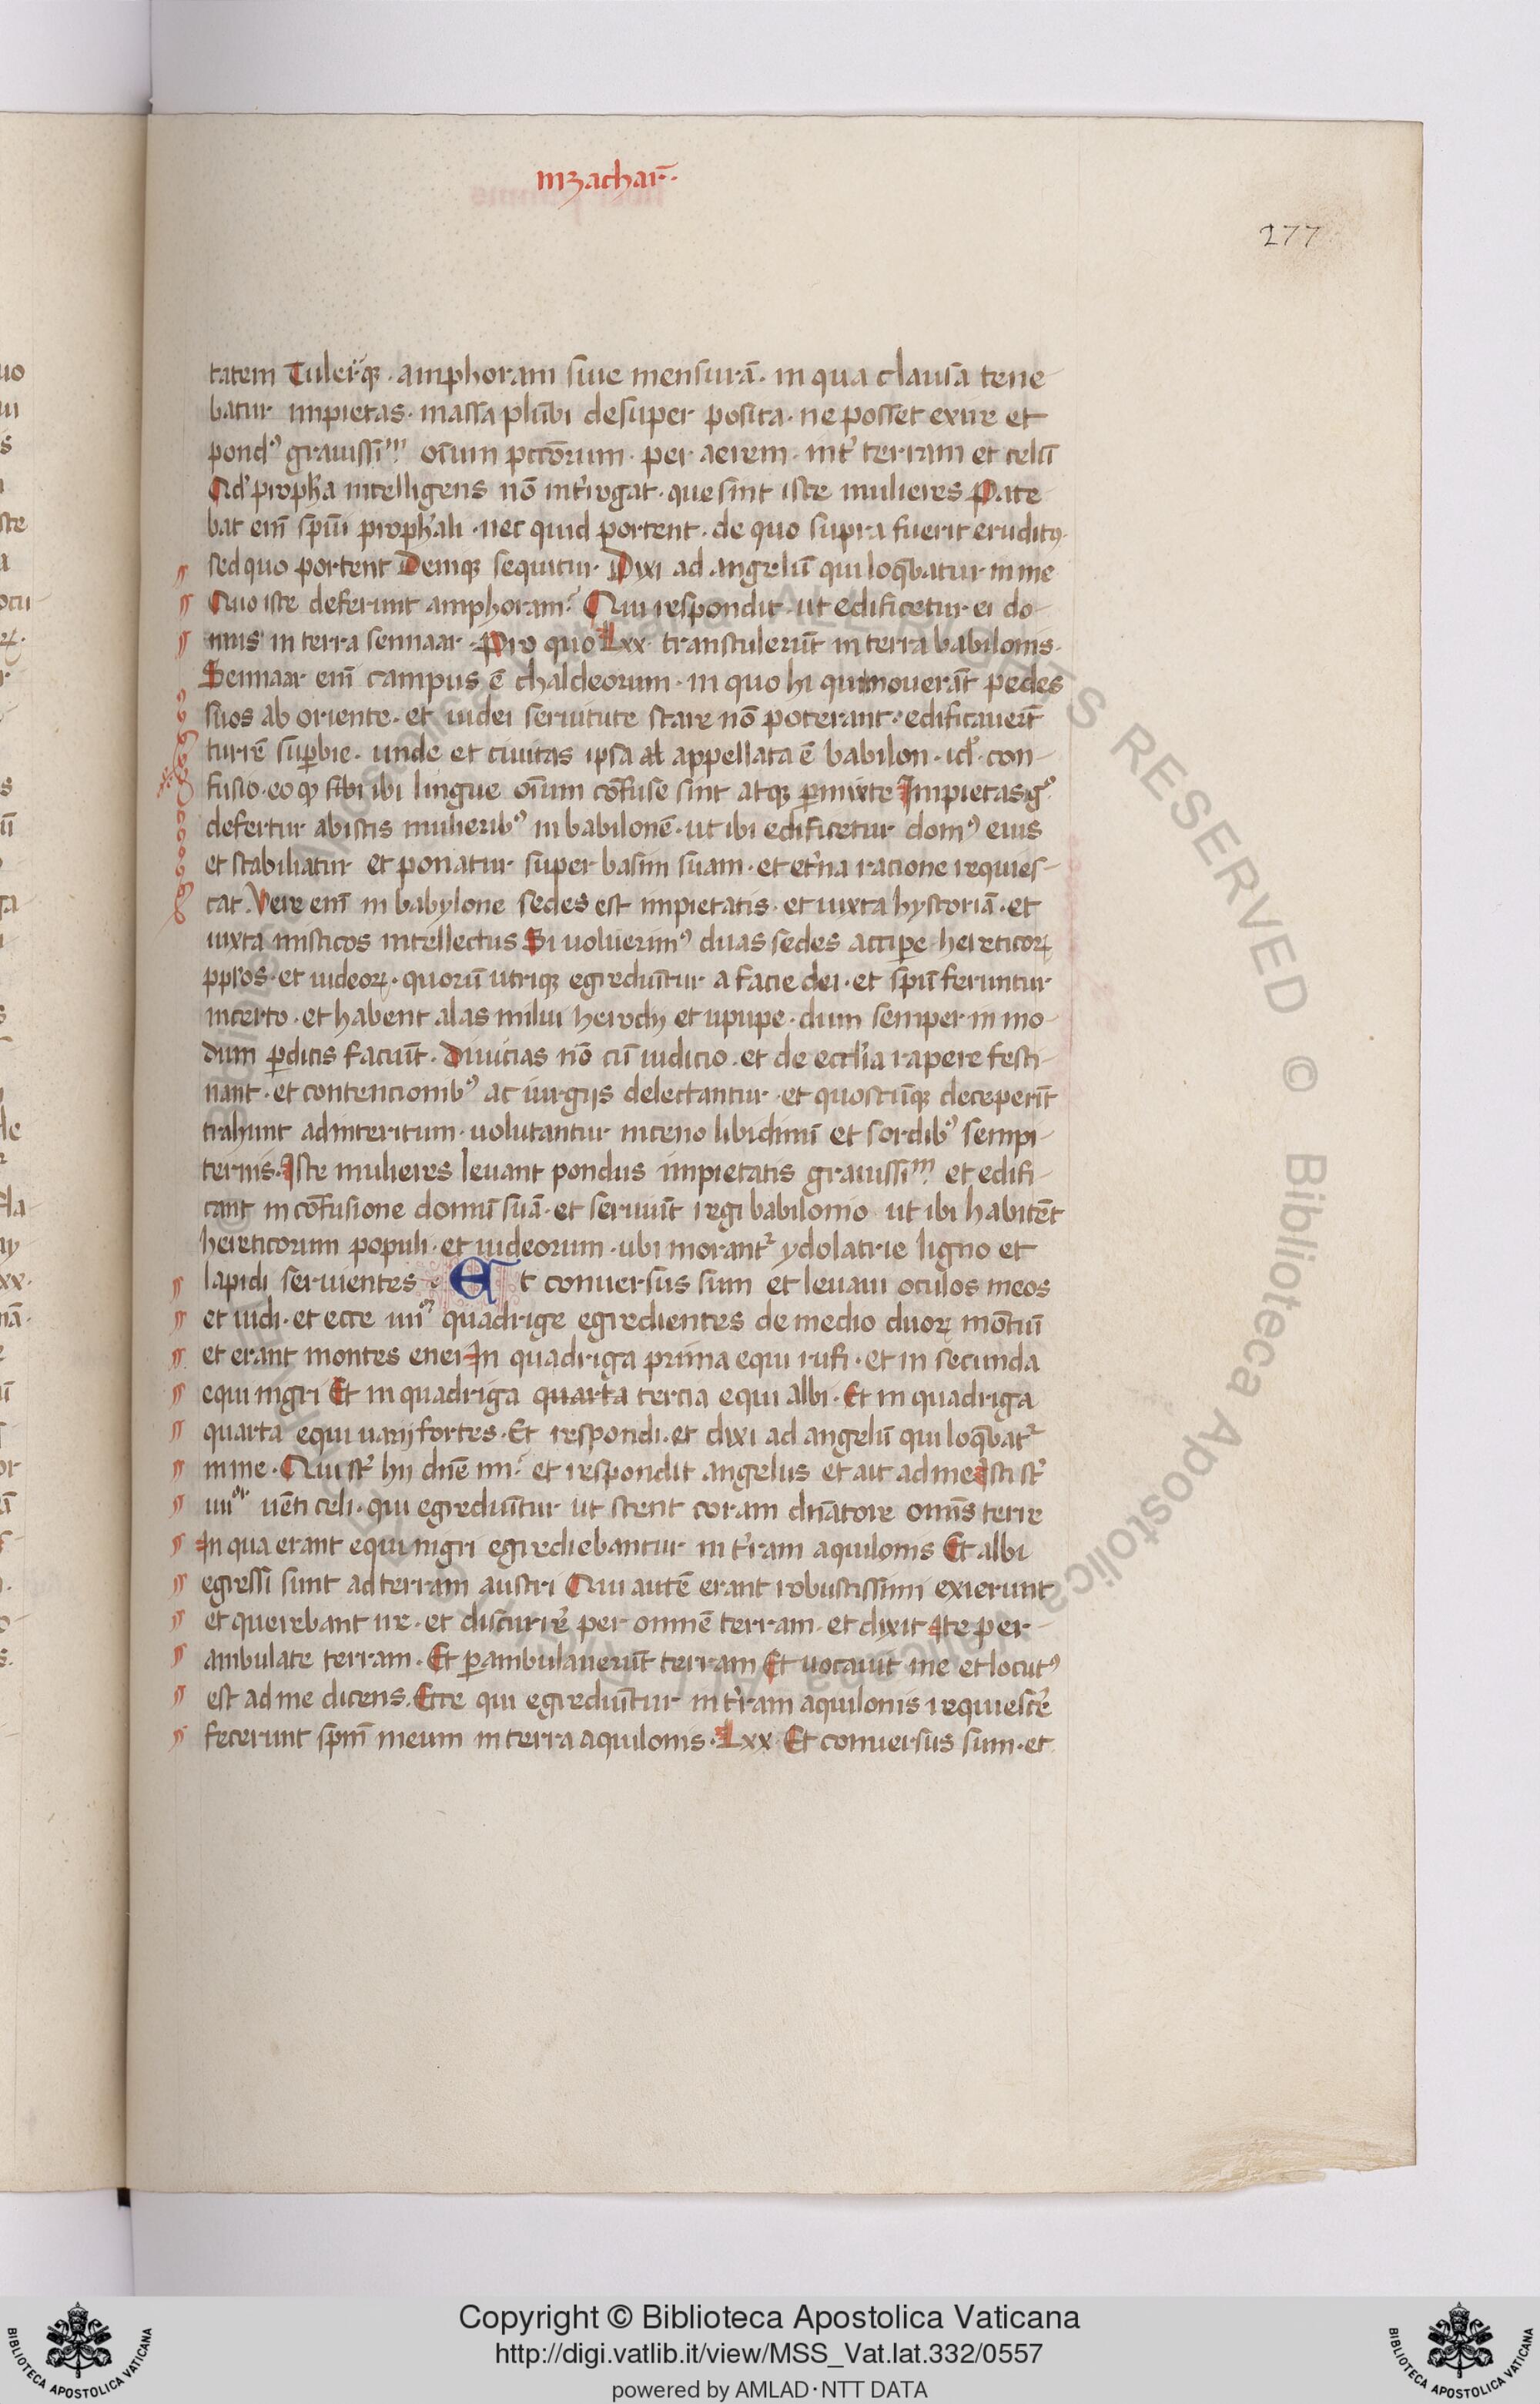 in zachar̄.
277
tatem Tuler̄q . amphoram siue mensurā . in qua clausā tene-
batur impietas . massa plūbi desuper posita . ne posset exire et
pond᷒ grauissimū oīum pctōrum . per aerem . int̓ terram et celū
Qd̓ propħa intelligens nō int̓rogat . que sint iste mulieres Pate-
bat eni̅ spi̅u prophali . nec quid portent . de quo supra fuerit eruditꝰ .
sed quo portent Deniqꝫ sequitur . Dixi ad angelū qui loq̄batur in me
Quo iste deferunt amphoram? Qui respondit . ut edificetur ei do-
mus in terra sennaar . Pro quo Lxx . transtulerūt in terra babilonis .
Sennaar eni̅ campus ē chaldeorum . in quo hi qui mouerāt pedes
suos ab oriente . et iudei seruitute stare nō poterant . edificauerūt
turrē suꝑbie . unde et ciuitas ipsa appellata ē babilon . id̓ . con-
fusio . eo ꝙ sibi ibi lingue oīum cōfuse sint atqꝫ ꝑmixte Impietas gͦ
defertur ab istis mulieribꝰ in babilonē . ut ibi edificetur domꝰ eius
et stabiliatur et ponatur super basim suam . et et̓na racione requies-
cat . Vere eni̅ in babylone sedes est impietatis . et iuxta hystoriā . et
iuxta misticos intellectus Si uoluerimꝰ duas sedes acciꝑe hereticoꝝ
ppl̓os . et iudeoꝝ . quorū utriqꝫ egrediūtur a facie dei . et spi̅u feruntur
incerto . et habent alas milui herodij et upupe . dum semper in mo-
dum ꝑdicis faciūt . Diuicias nō cū iudicio . et de eccl̓ia rapere festi-
nant . et contencionibꝰ ac iurgijs delectantur . et quoscūqꝫ deceperīt
trahunt ad interitum . uolutantur in ceno libidinū et sordibꝰ sempi-
ternis . Iste mulieres leuant pondus impietatis grauissimū et edifi-
cant in cōfusione domū suā . et seruiūt regi babilonio ut ibi habitēt
hereticorum populi . et iudeorum . ubi morant᷑ ydolatrie ligno et
lapidi seruientes . Et conuersus sum et leuaui oculos meos
et uidi . et ecce iiiior quadrige egredientes de medio duoꝝ mōtiū
et erant montes enei In quadriga prima equi rufi . et in secunda
equi nigri Et in quadriga quarta tercia equi albi . Et in quadriga
quarta equi uarij fortes . Et respondi . et dixi ad angelū qui loq̄bat᷑
in me . Qui st̓ hii dn̄e mi? et respondit angelus et ait ad me Isti st̓
iiiior uēti celi . qui egrediūtur ut stent coram dn̄atore omīs terre
In qua erant equi nigri egrediebantur in t̓ram aquilonis Et albi
egressi sunt ad terram austri Qui autē erant robustissimi exierunt
et querebant ire . et discurrē per omnē terram . et dixit Ite per-
ambulate terram . Et ꝑambulauerūt terram Et uocauit me et locutꝰ
est ad me dicens . Ecce qui egrediūtur in t̓ram aquilonis requiescē
fecerunt spm̄ meum in terra aquilonis . Lxx . Et conuersus sum . et
ALL RIGHTS RESERVED © Biblioteca Apostolica Vaticana
BIBLIOTECA APOSTOLICA VATICANA
Copyright © Biblioteca Apostolica Vaticana
http://digi.vatlib.it/view/MSS_Vat.lat.332/0557
powered by AMLAD·NTT DATA
BIBLIOTECA APOSTOLICA VATICANA